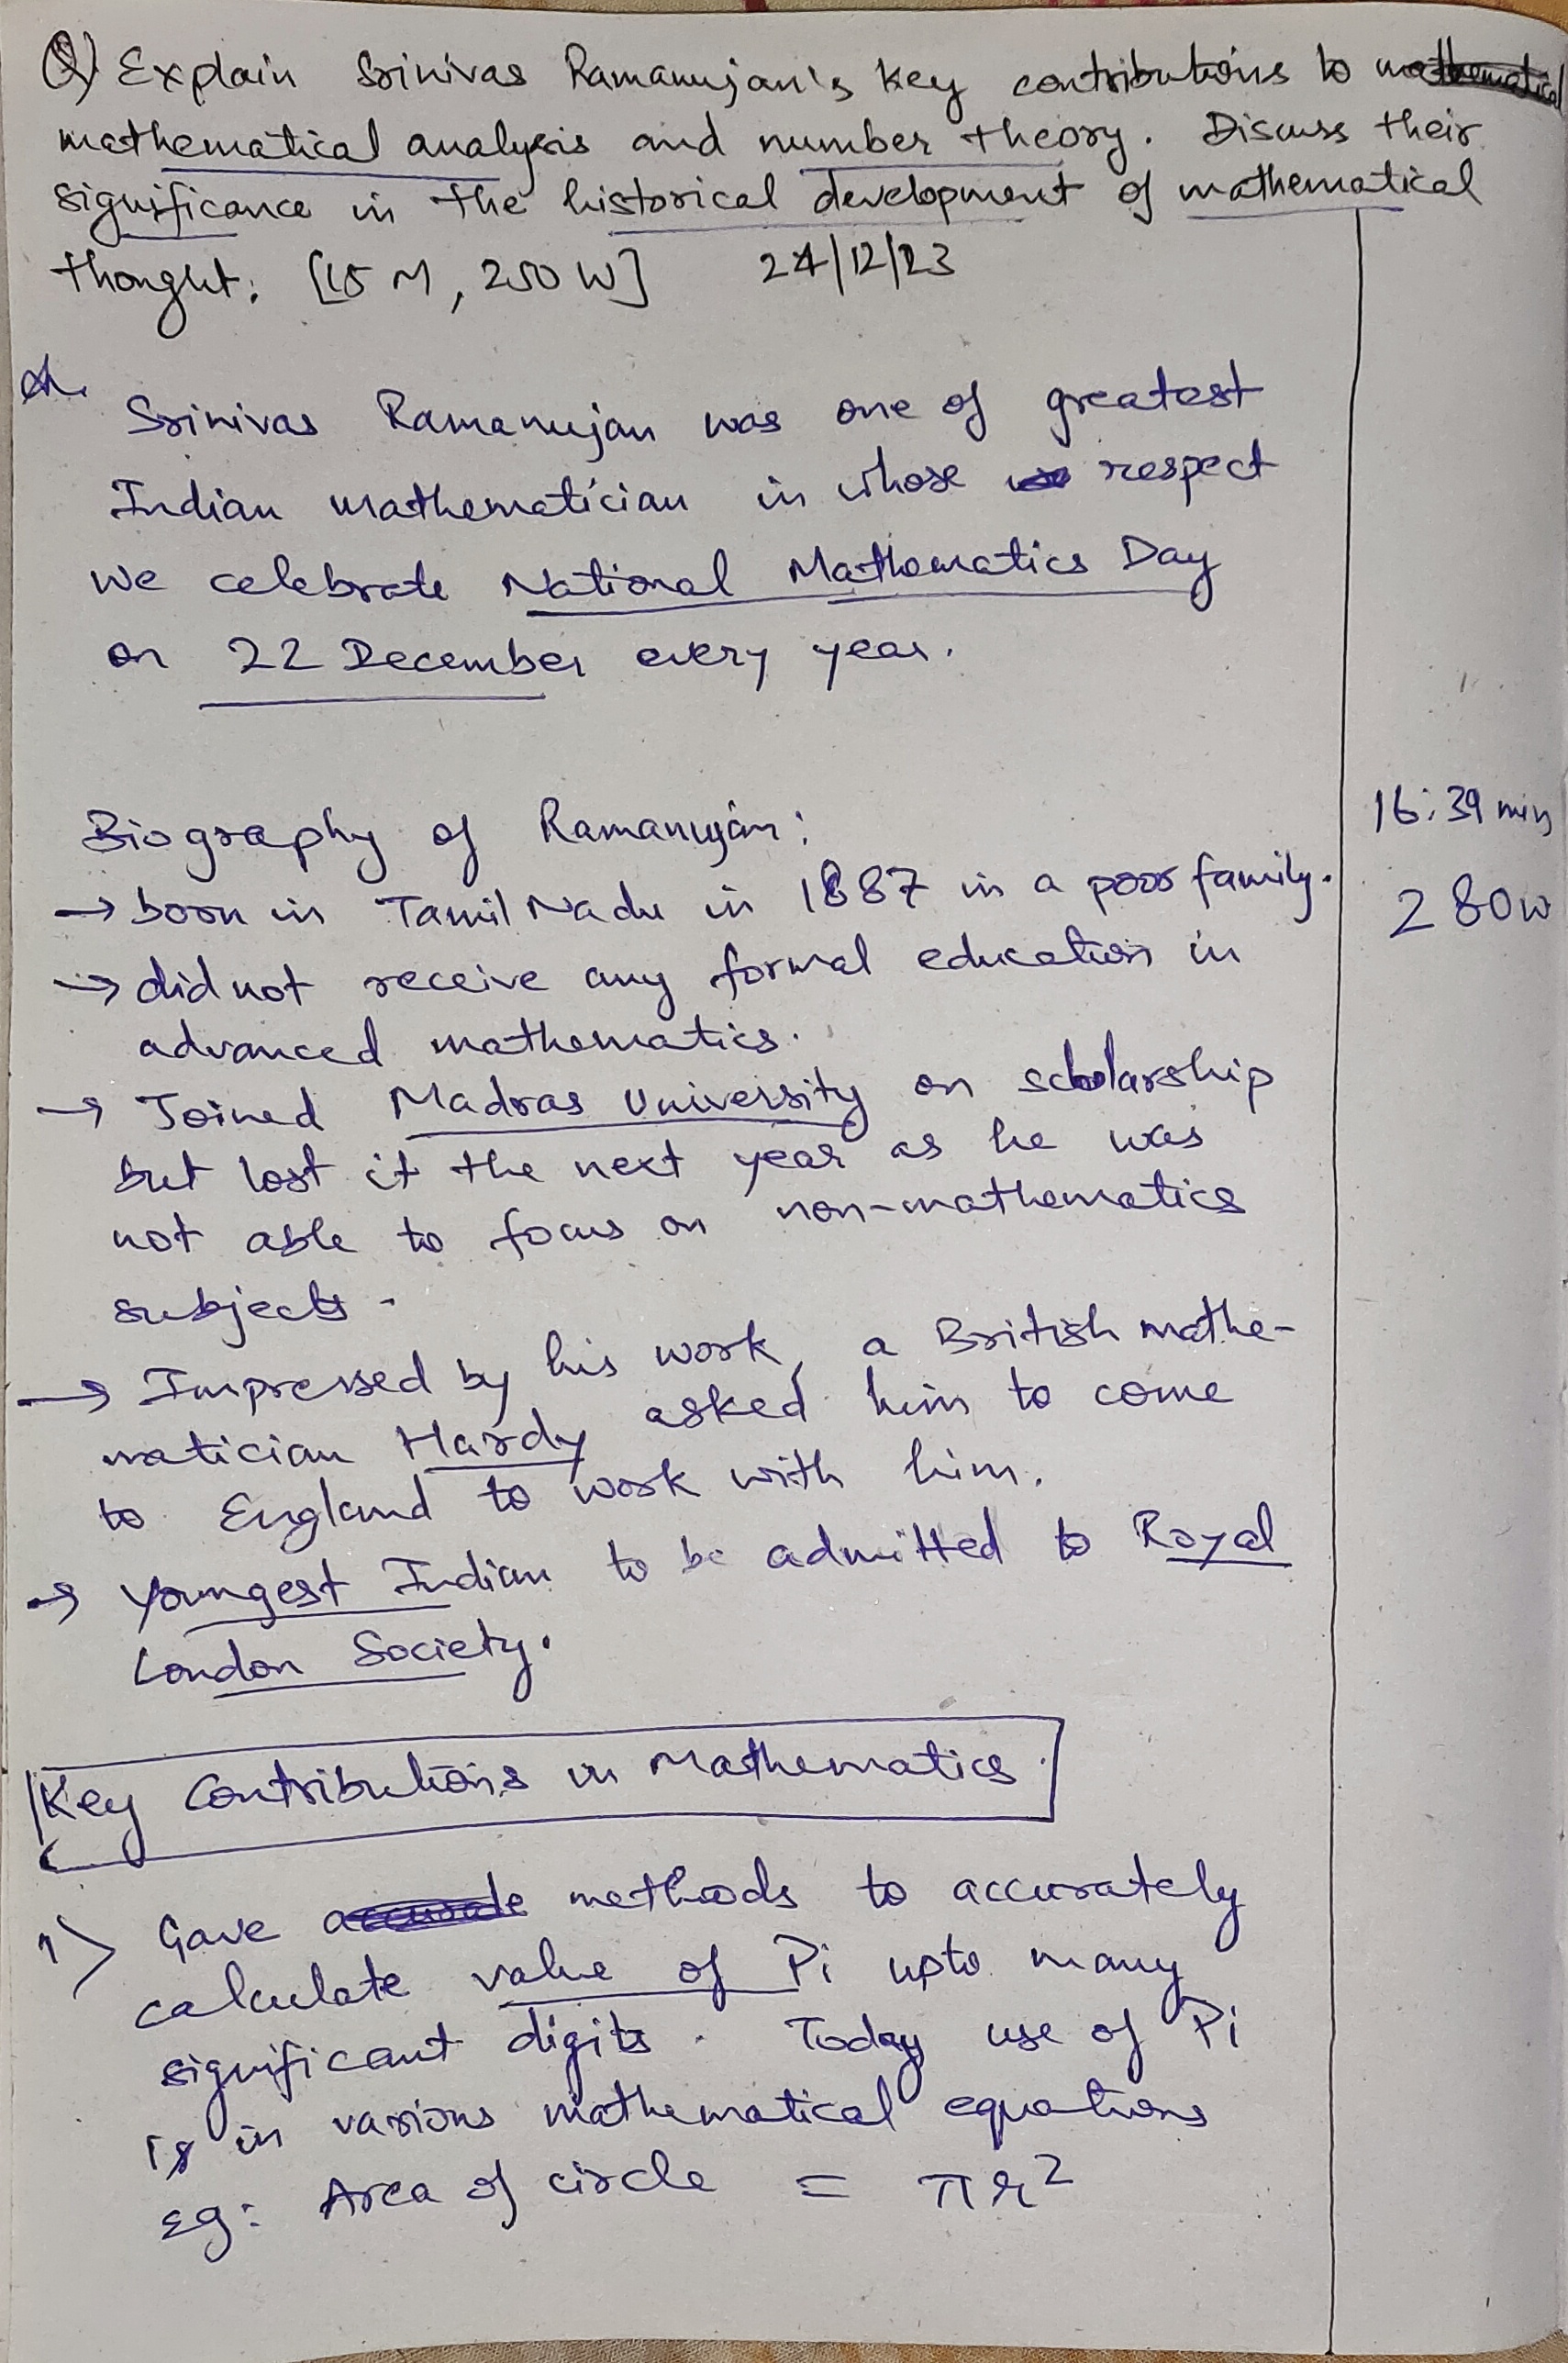 Q) Explain Srinivas Ramanujan's key contributions to mathematical
mathematical analysis and number theory. Discuss their
significance in the historical development of mathematical
thought. [15 M, 250 W] 24/12/23
A.
Srinivas Ramanujan was one of greatest
Indian mathematician in whose respect
we celebrate National Mathematics Day
on 22 December every year.
Biography of Ramanujan:
16:39 min
→ born in Tamil Nadu in 1887 in a poor family.
280w
→ did not receive any formal education in
advanced mathematics.
→ Joined Madras University on scholarship
but lost it the next year as he was
not able to focus on non-mathematics
subjects.
→ Impressed by his work, a British mathe-
matician Hardy asked him to come
to England to work with him.
→ Youngest Indian to be admitted to Royal
London Society.
Key Contributions in Mathematics
1) Gave accurate methods to accurately
calculate value of Pi upto many
significant digits. Today use of Pi
is in various mathematical equations
Eg: Area of circle = πr²